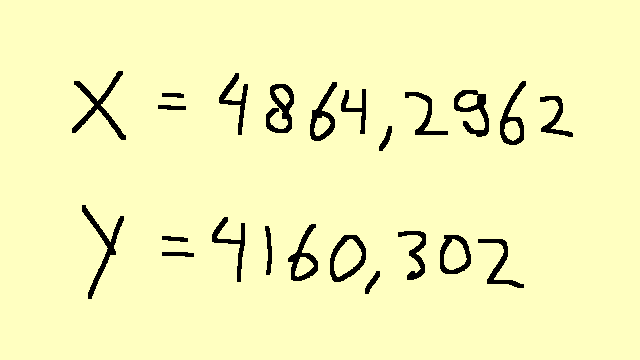 X = 4864,2962
Y = 4160,302